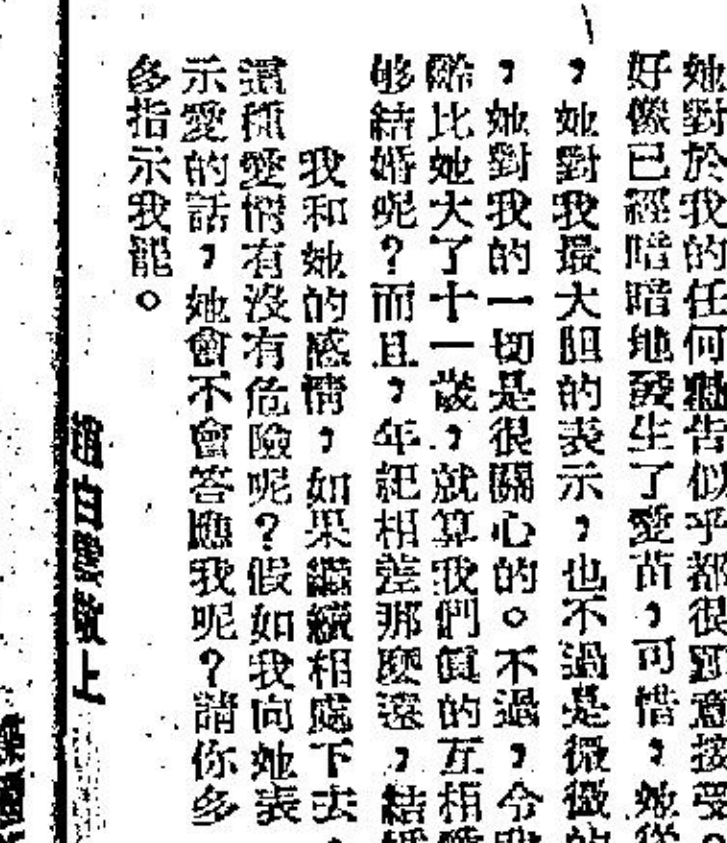 她對於我的任何勸告似乎都很願意接受。
好像已經暗暗地發生了愛苗，可惜，她從
，她對我最大胆的表示，也不過是微微的
，她對我的一切是很關心的。不過，令我
齡比她大了十一歲，就算我們真的互相愛
够結婚呢？而且，年紀相差那麼遠，結婚
我和她的感情，如果繼續相處下去，
這種愛情有沒有危險呢？假如我向她表
示愛的話，她會不會答應我呢？請你多
多指示我罷。
上